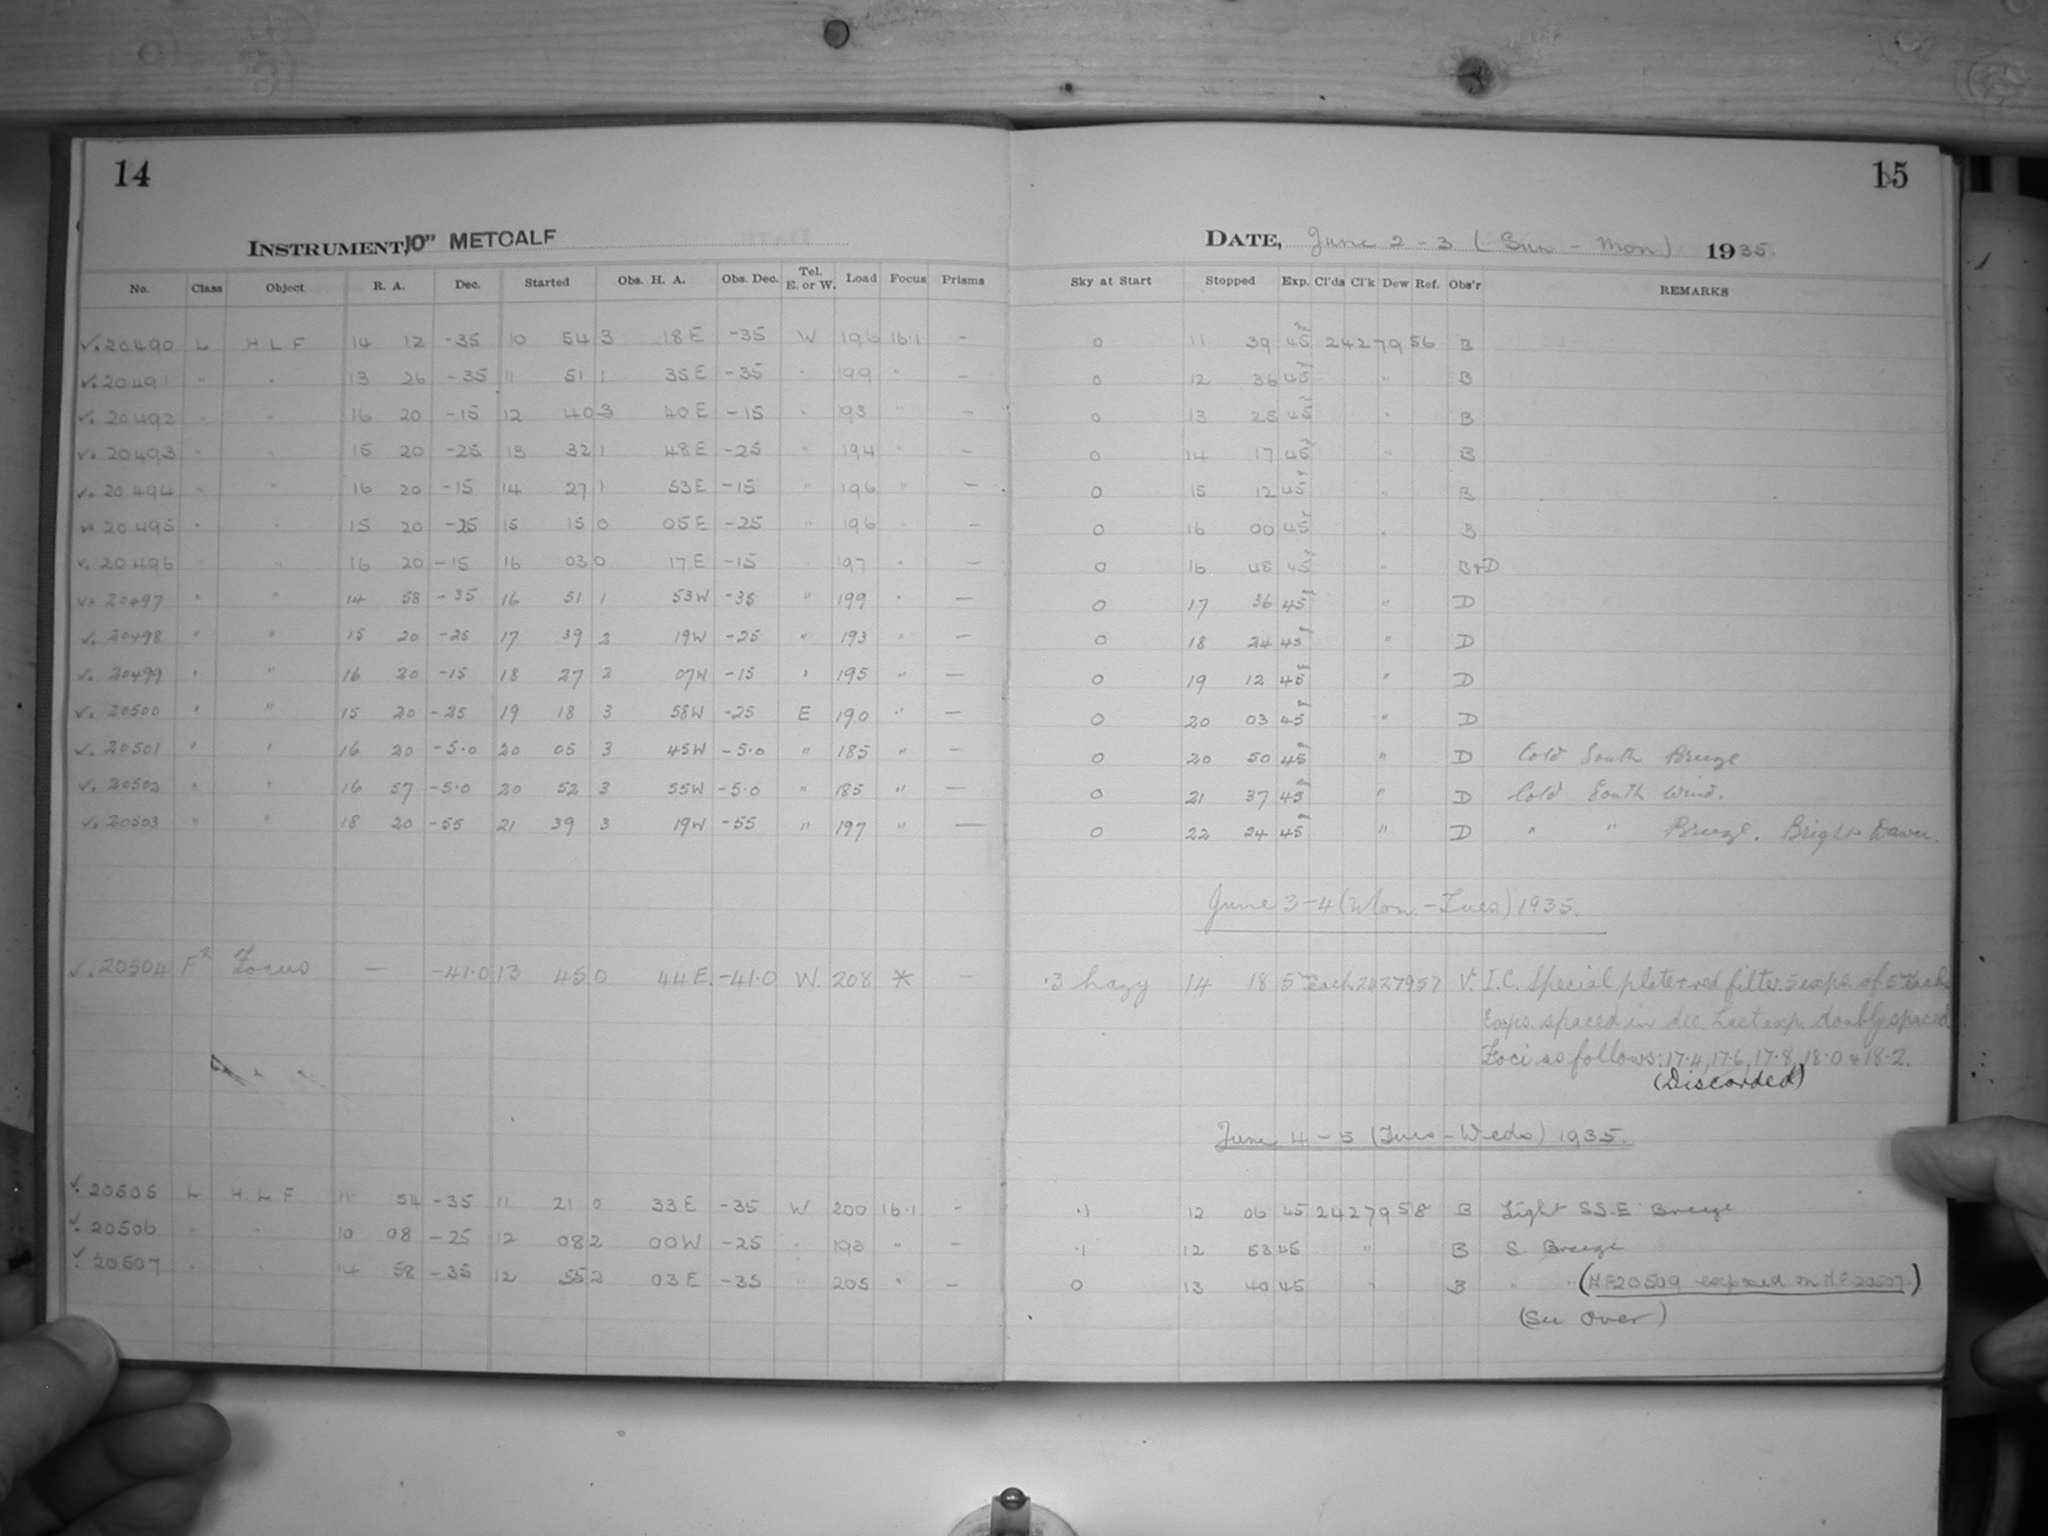 14
15
INSTRUMENT, 10" METCALF
DATE, June 2-3 (Sun - Mon) 1935
No. Class Object R. A. Dec. Started Obs. H. A. Obs. Dec. Tel. E. or W. Load Focus Prisms Sky at Start Stopped Exp. Cl'ds Cl'k Dew Ref. Obs'r REMARKS
√. 20490 L H L F 14 12 -35 10 54 3 18 E -35 W 196 16.1 - 0 11 39 45 24 27956 B
√. 20491 " " 13 26 -35 11 51 1 35 E -35 " 199 " - 0 12 36 45 " B
√. 20492 " " 16 20 -15 12 40 3 40 E -15 " 193 " - 0 13 25 45 " B
√. 20493 " " 15 20 -25 13 32 1 48 E -25 " 194 " - 0 14 17 45 " B
√. 20494 " " 16 20 -15 14 27 1 53 E -15 " 196 " - 0 15 12 45 " B
√. 20495 " " 15 20 -25 15 15 0 05 E -25 " 196 " - 0 16 00 45 " B
√. 20496 " " 16 20 -15 16 03 0 17 E -15 " 197 " - 0 16 48 45 " B+D
√. 20497 " " 14 58 -35 16 51 1 53 W -35 " 199 " - 0 17 36 45 " D
√. 20498 " " 15 20 -25 17 39 2 19 W -25 " 193 " - 0 18 24 45 " D
√. 20499 " " 16 20 -15 18 27 2 07 W -15 " 195 " - 0 19 12 45 " D
√. 20500 " " 15 20 -25 19 18 3 58 W -25 E 190 " - 0 20 03 45 " D
√. 20501 " " 16 20 -5.0 20 05 3 45 W -5.0 " 185 " - 0 20 50 45 " D Cold South Breeze
√. 20502 " " 16 57 -5.0 20 52 3 55 W -5.0 " 185 " - 0 21 37 45 " D Cold South Wind.
√. 20503 " " 18 20 -55 21 39 3 19 W -55 " 197 " - 0 22 24 45 " D " " Breeze. Bright Dawn.
June 3-4 (Mon. - Tues) 1935.
√. 20504 F² Focus - -41.0 13 45 0 44 E -41.0 W. 208 * - .3 hazy 14 18 5m each 24 27957 V. I.C. Special plate red filter. 5 exps. of 5m each
Exps. spaced in dec. Last exp. doubly spaced.
Foci as follows: 17.4, 17.6, 17.8, 18.0 & 18.2.
(Discarded)
June 4-5 (Tues - Weds) 1935.
√. 20505 L H. L F 11 54 -35 11 21 0 33 E -35 W 200 16.1 - .1 12 06 45 24 27958 B Light S.S.E Breeze
√. 20506 " " 10 08 -25 12 08 2 00 W -25 " 193 " - .1 12 53 45 " B S. Breeze
√. 20507 " " 14 58 -35 12 55 2 03 E -35 " 205 " - 0 13 40 45 " B " " (MF20509 exposed on MF 20507)
(See Over)